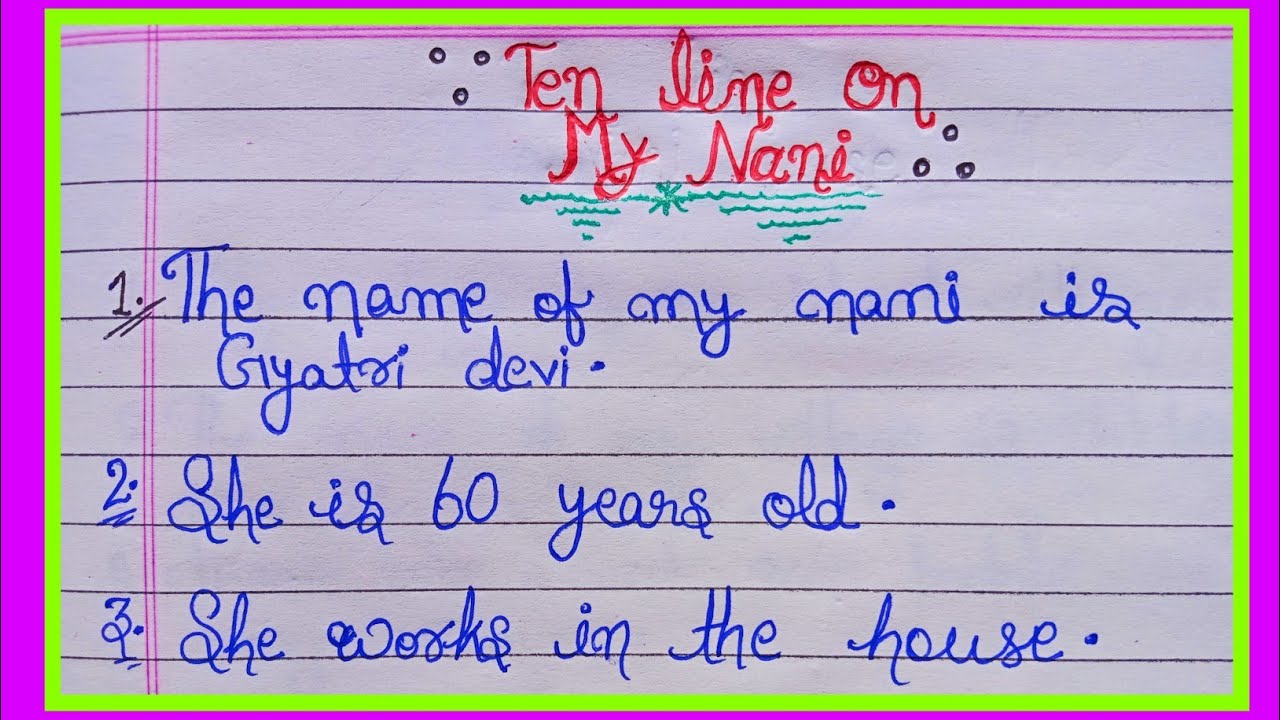 Ten line on
My Nani
1. The name of my nani is
Gyatri devi.
2. She is 60 years old.
3. She works in the house.